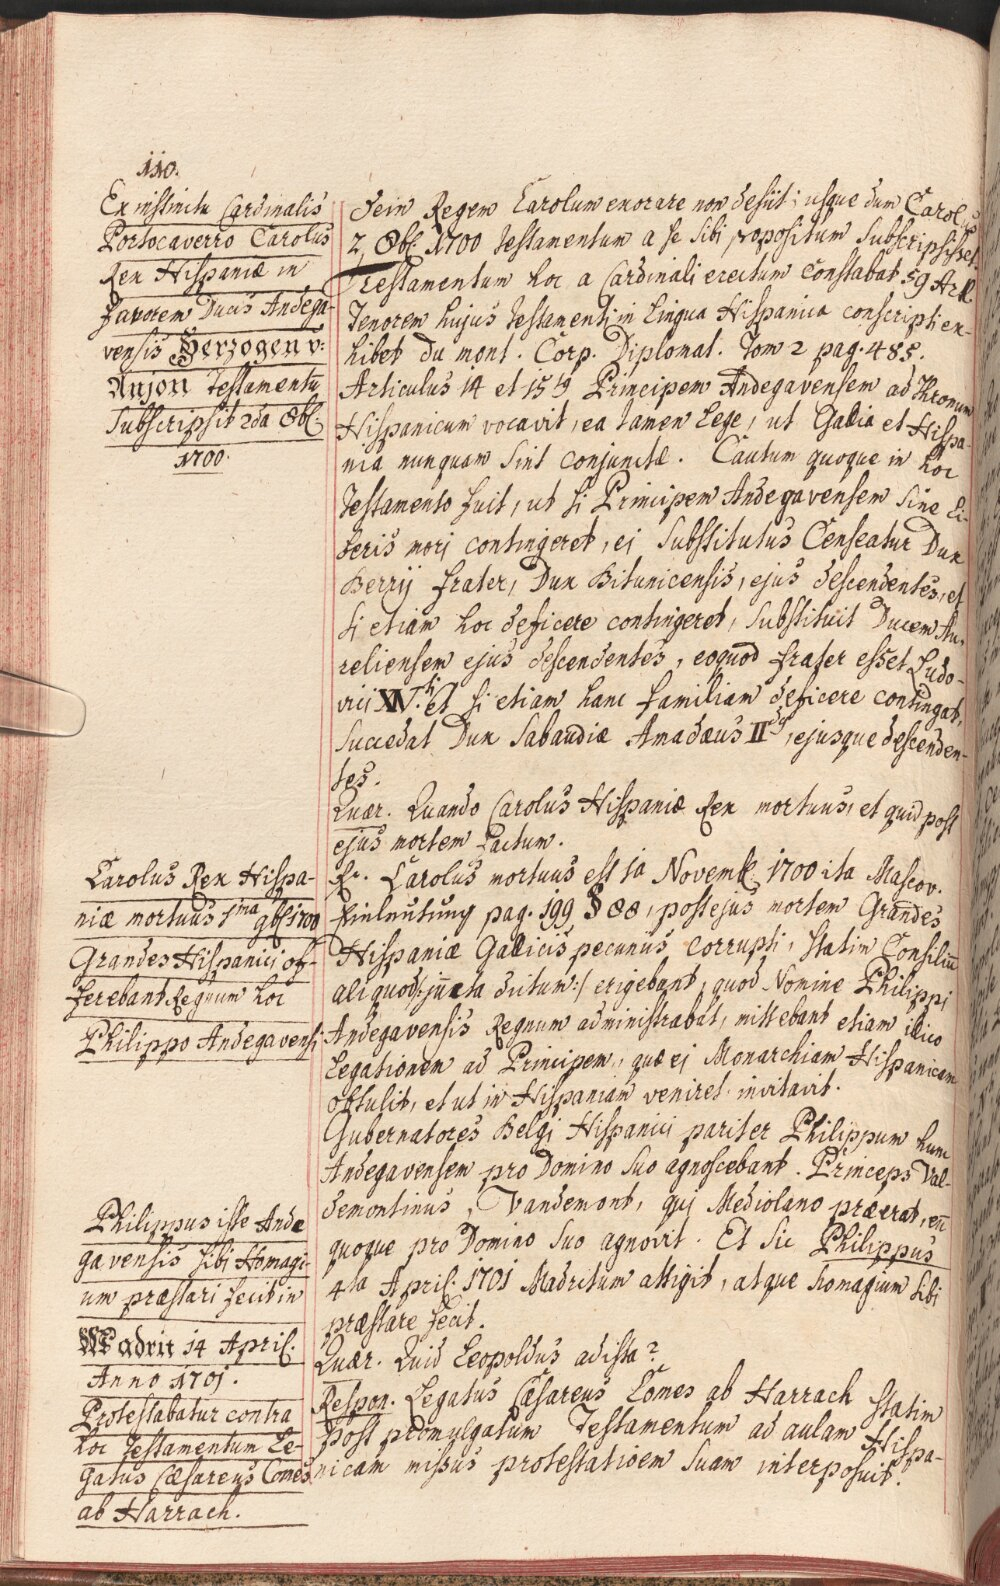 110.
Ex instinctu Cardinalis
Portocaverro Carolus
Rex Hispaniæ in
favorem Ducis Andega-
vensis Herzogen v:
Anjon Testamentu
Subscripsit 2da 8bl.
1700.
dein Regem Carolum exorare non desiit; usque dum Carol9
2, 8bl: 1700 testamentum a se sibi propositum subscripsisset.
Testamentum hoc a Cardinali erectum constabat 59 Artl
Tenorem hujus testamenti in Lingua Hispanica conscripti ex-
hibet du mont. Corp. Diplomat. Tom 2 pag. 485.
Articulus 14 et 15 Principem Andegavensem ad Thronum
Hispanicum vocavit, ea tamen Lege, ut Gallia et Hispa-
nia nunquam sint conjunctæ. Cautum quoque in hoc
Testamento fuit, ut si Principem Andegavensem sine Li-
beris mori contingeret, ej substitutus Censeatur Dux
Berrij frater, Dux Bitunicensis, ejus descendentes, et
si etiam hoc deficere contingeret, substituit Ducem Au-
reliensem ejus descendentes, eoquod frater esset Ludo-
vici XIV.ti et si etiam hanc familiam deficere contingat,
succedat Dux Sabaudiæ Amadæus II dus, ejusque descenden-
tes.
Quær. Quando Carolus Hispaniæ Rex mortuus, et quid post
ejus mortem factum.
Carolus Rex Hispa-
niæ mortuus 1ma 9bl 1700
Grandes Hispanici of-
ferebant Regnum hoc
Philippo Andegavensi
Rr. Carolus mortuus est 1a Novembl. 1700 ita Mascov.
Einleutung pag. 199 § 88, post ejus mortem Grandes
Hispaniæ Gallicis pecuniis corrupti, statim Consiliu
aliquod /:juncta dictum:/ erigebant, quod Nomine Philippi
Andegavensis Regnum administrabat, mittebant etiam illico
Legationem ad Principem, quæ ej Monarchiam Hispanicam
obtulit, et ut in Hispaniam veniret invitavit.
Gubernatores Belgj Hispanici pariter Philippum hunc
Andegavensem pro Domino suo agnoscebant. Princeps Val-
demontinus, Vandemont, quj Mediolano præerat, eu
quoque pro Domino suo agnovit. Et sic Philippus
4ta April. 1701 Madritum attigit, atque homagium sibi
præstare fecit.
Philippus iste Ande
gavensis sibi Homagi-
um præstari fecit in
Madrit 14 April.
Anno 1701.
Quær. Quid Leopoldus ad ista?
Protestabatur contra
hoc Testamentum Le-
gatus Cæsareus Comes
ab Harrach.
Respon. Legatus Cæsareus Comes ab Harrach statim
post promulgatum Testamentum ad aulam Hispa-
nicam missus protestatioem suam interposuit.